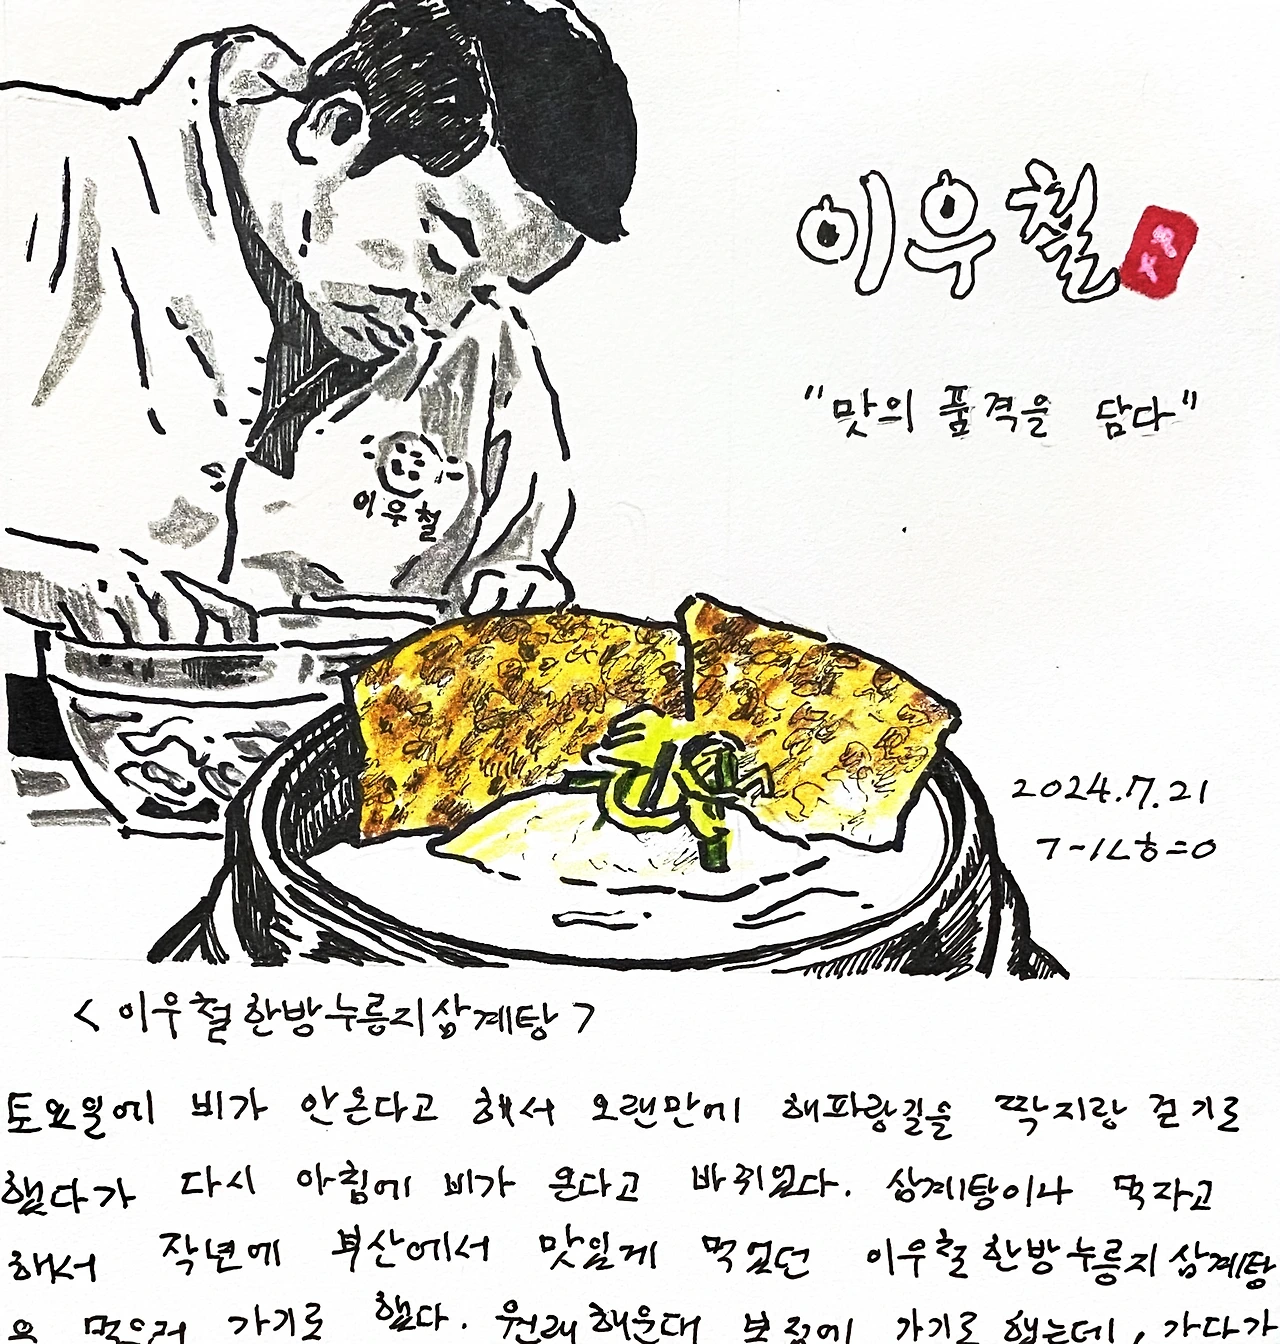 이우철
"맛의 품격을 담다"
이우철
2024.7.21
<이우철한방누릉지삼계탕>
토요일에 비가 안온다고 해서 오랜만에 해파랑길을 딱지랑 걷기로
했다가 다시 아침에 비가 온다고 바뀌었다. 삼계탕이나 먹자고
해서 작년에 부산에서 맛있게 먹었던 이우철한방누릉지삼계탕
을 먹으러 가기로 했다. 원래 해운대 본점에 가기로 했는데, 가다가